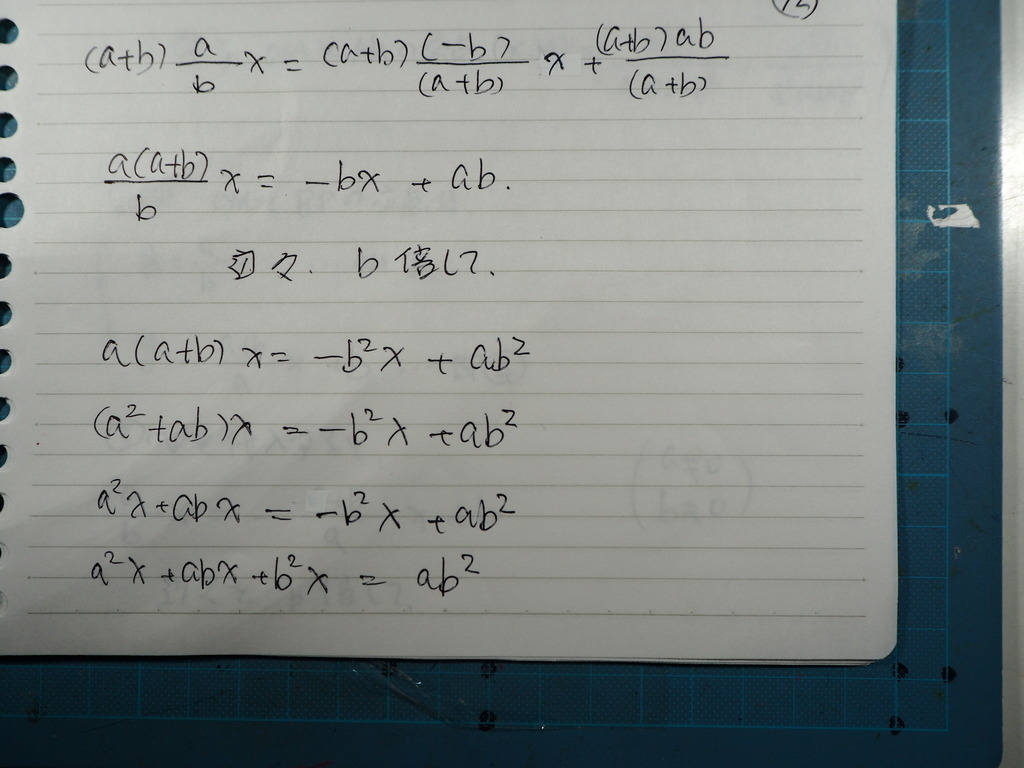 (a+b) a/b x = (a+b) (-b)/(a+b) x + (a+b)ab/(a+b)
a(a+b)/b x = -bx + ab.
辺々. b倍して.
a(a+b)x = -b²x + ab²
(a²+ab)x = -b²x + ab²
a²x+abx = -b²x + ab²
a²x+abx+b²x = ab²